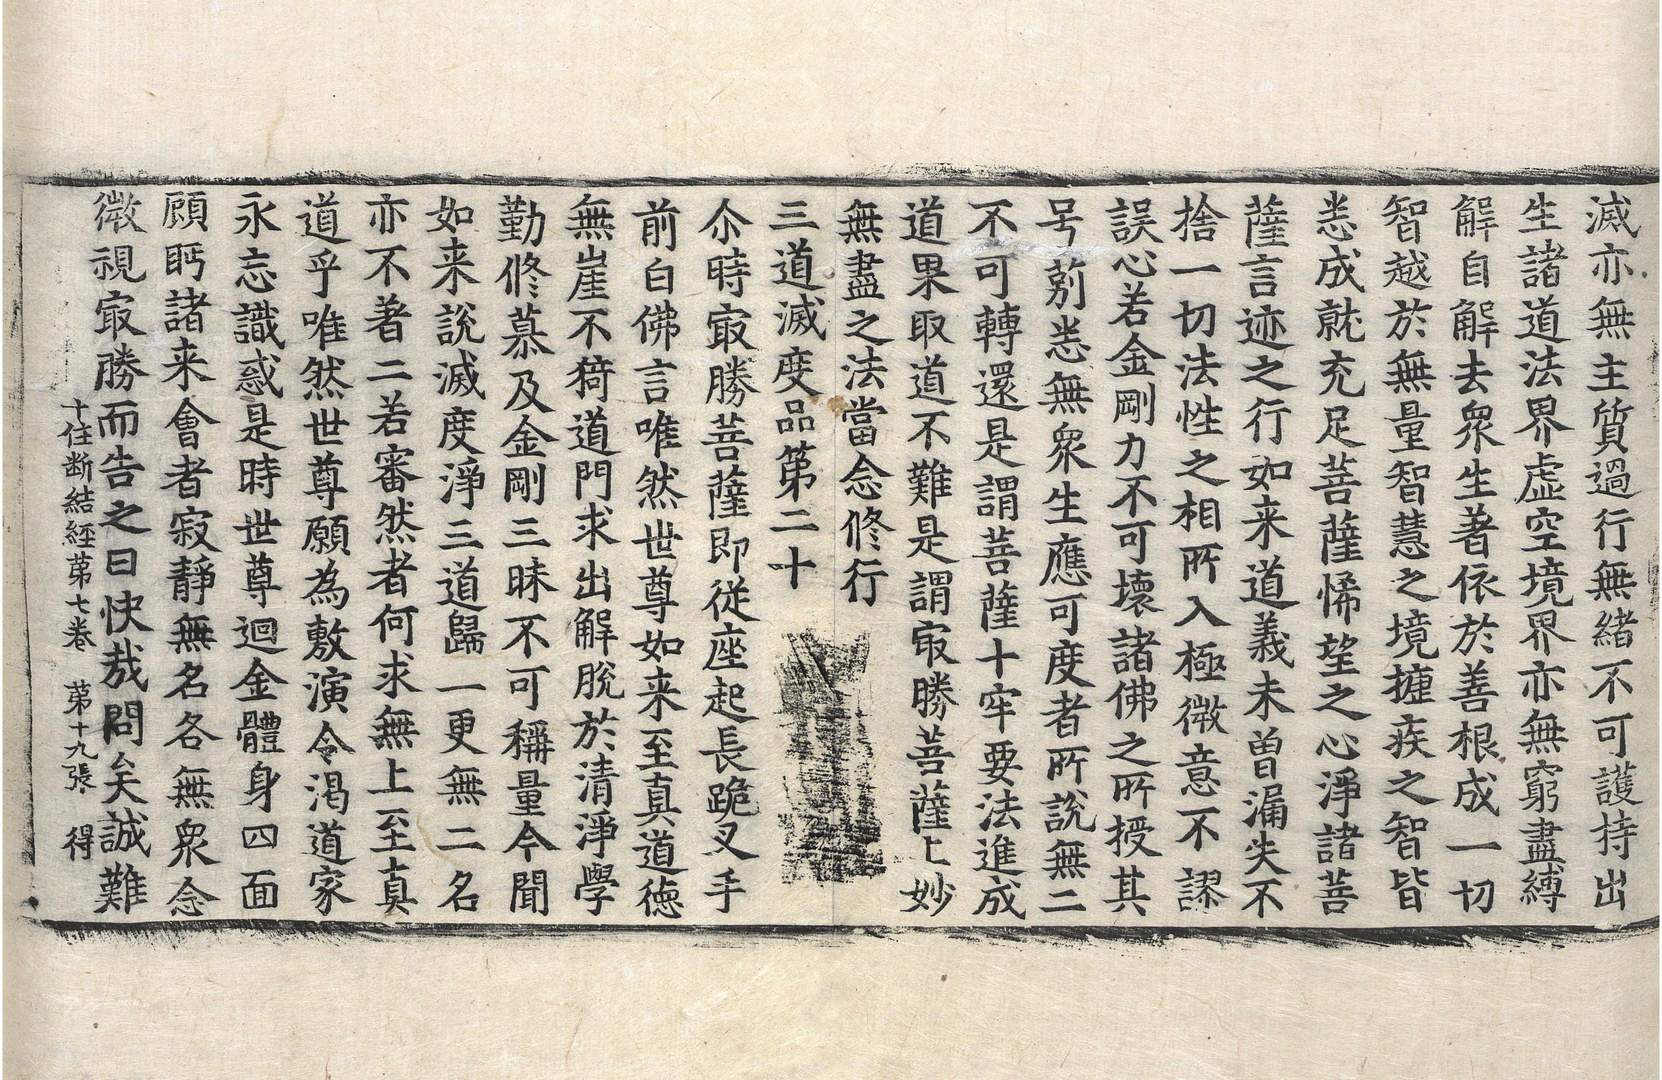 滅亦無主質過行無緒不可護持出
生諸道法界虛空境界亦無窮盡縛
解自解去衆生著依於善根成一切
智越於無量智慧之境摭疾之智皆
悉成就充足菩薩悕望之心淨諸菩
薩言迹之行如来道義未曽漏失不
捨一切法性之相所入極微意不謬
誤心若金剛力不可壞諸佛之所授其
号莂悉無衆生應可度者所說無二
不可轉還是謂菩薩十牢要法進成
道果取道不難是謂㝡勝菩薩上妙
無盡之法當念修行
三道滅度品第二十
尒時㝡勝菩薩即従座起長跪叉手
前白佛言唯然世尊如来至真道德
無崖不猗道門求出解脫於清淨學
勤修慕及金剛三昧不可稱量今聞
如来說滅度淨三道歸一更無二名
亦不著二若審然者何求無上至真
道乎唯然世尊願為敷演令渇道家
永忘識惑是時世尊迴金體身四面
顧眄諸来會者寂靜無名各無衆念
微視㝡勝而告之曰快哉問矣誠難
十住断結經苐七卷 苐十九張 得